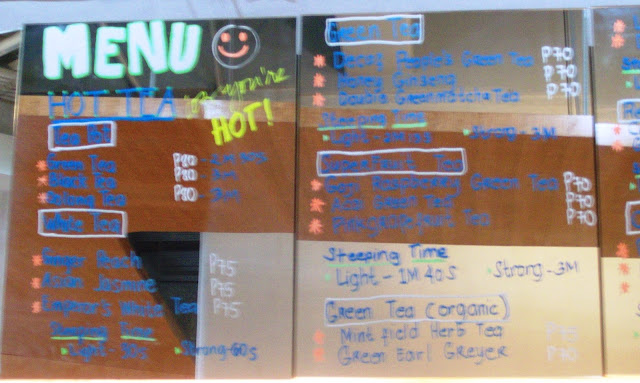 MENU
HOT TEA
you're
HOT!
Tea Pot
Green Tea P80 - 2 mins
Black Tea P80 - 3m
Oolong Tea P80 - 3m
White Tea
Ginger Peach P75
Asian Jasmine P75
Emperor's White Tea P75
Steeping Time
Light - 30s Strong - 60s
Green Tea
Decaf People's Green Tea P70
Honey Ginseng P70
Double Green Matcha Tea P70
Steeping Time
Light - 2mins Strong - 3M
Superfruit Tea
Goji Raspberry Green Tea P70
Acai Green Tea P70
Pink Grapefruit Tea P70
Steeping Time
Light - 1M 40S Strong - 3M
Green Tea (organic)
Mint field Herb Tea
Green Earl Greyer P70